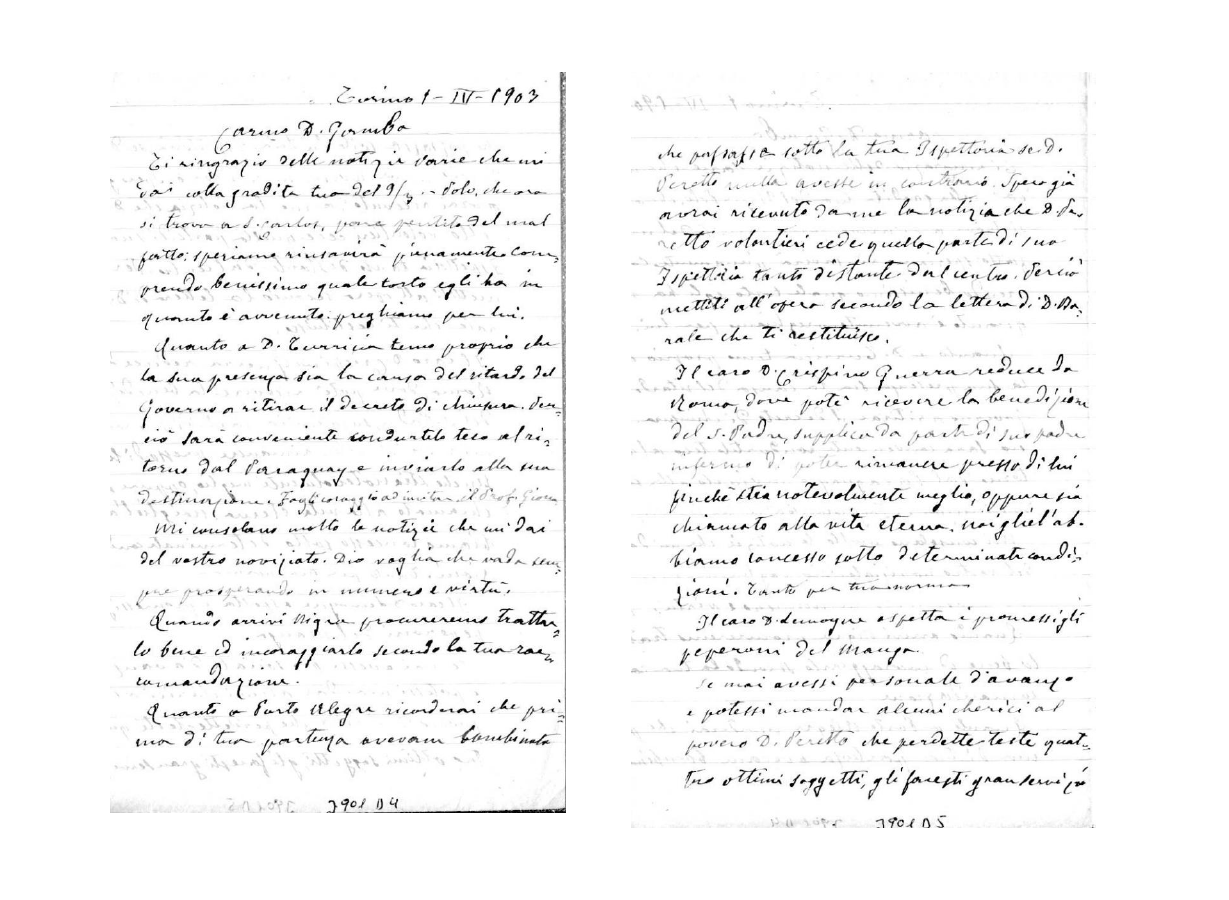 Torino 1-IV-1903
Carmo D. Gamba
Ti ringrazio delle notizie varie che mi
dai colla gradita tua del 9/3. - Dolo, che ora
si trova a S. Carlos, pare pentito del mal
fatto: speriamo rinsavirà pienamente. Com-
prendo benissimo quale torto egli ha in
quanto è avvenuto: preghiamo per lui.
Quanto a D. Turriccia temo proprio che
la sua presenza sia la causa del ritardo del
Governo a ritirar il decreto di chiusura. Per=
ciò sarà conveniente condurtelo teco al ri-
torno dal Paraguay e inviarlo alla sua
destinazione. Fagli coraggio ad imitar il Prof.
Mi consolano molto le notizie che mi dai
del vostro noviziato. Dio voglia che vada sem-
pre prosperando in numero e virtù.
Quando arrivi Migra procureremo tratta-
lo bene ed incoraggiarlo secondo la tua rac-
comandazione.
Quanto a Porto Alegre ricorderai che pri=
ma di tua partenza avevam combinato
J901 D4
che passasse sotto la tua Ispettoria se D.
Peretto nulla avesse in contrario. Spero già
avrai ricevuto da me la notizia che D. Pe-
retto volontieri cede quella parte di sua
Ispettoria tanto distante dal centro. Perciò
mettiti all'opera secondo la lettera di D. Ba-
rale che ti restituisco.
Il caro D. Crispino Guerra reduce da
Roma, dove potè ricevere la benedizione
del S. Padre, supplica da parte di suo padre
infermo di poter rimanere presso di lui
finchè stia notevolmente meglio, oppure sia
chiamato alla vita eterna. noi gliel'ab-
biamo concesso sotto determinate condi-
zioni. Tanto per tua norma
Il caro D. Lemoyne aspetta i promessigli
peperoni del Manga.
Se mai avessi personale d'avanzo
e potessi mandar alcuni chierici al
povero D. Peretto che perdette teste quat-
tro ottimi soggetti, gli faresti gran servizio
J901 D5